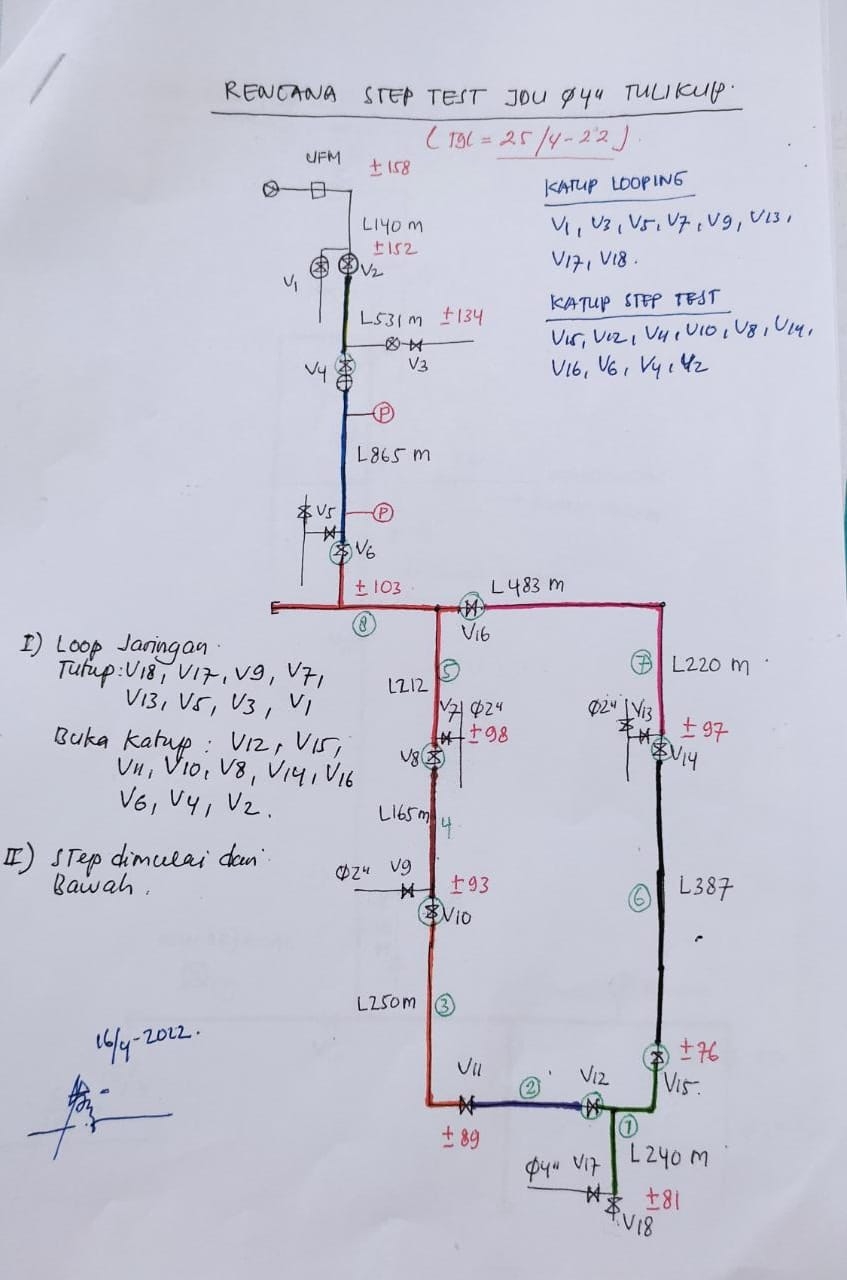 RENCANA STEP TEST JDU Ø4" TULIKUP.
( Tgl = 25/4-22 ).
UFM
± 158
KATUP LOOPING
V1, V3, V5, V7, V9, V13,
V17, V18.
L140 m
± 152
V1
V2
KATUP STEP TEST
V15, V12, V4, V10, V8, V14,
V16, V6, V4, V2
L531 m ± 134
V4
V3
P
L865 m
V5
P
V6
± 103
L483 m
E
8
V16
I) Loop Jaringan.
Tutup: V18, V17, V9, V7,
V13, V5, V3, V1
Buka Katup : V12, V15,
V11, V10, V8, V14, V16
V6, V4, V2.
II) STEP dimulai dari
Bawah.
5
L212
7
L220 m
V7 Ø2"
± 98
V8
Ø2" V13
± 97
V14
L165m
4
Ø2" V9
± 93
V10
6
L387
L250m
3
16/4-2022.
± 76
V15.
V11
2
V12
± 89
1
L240 m
Ø4" V17
± 81
V18